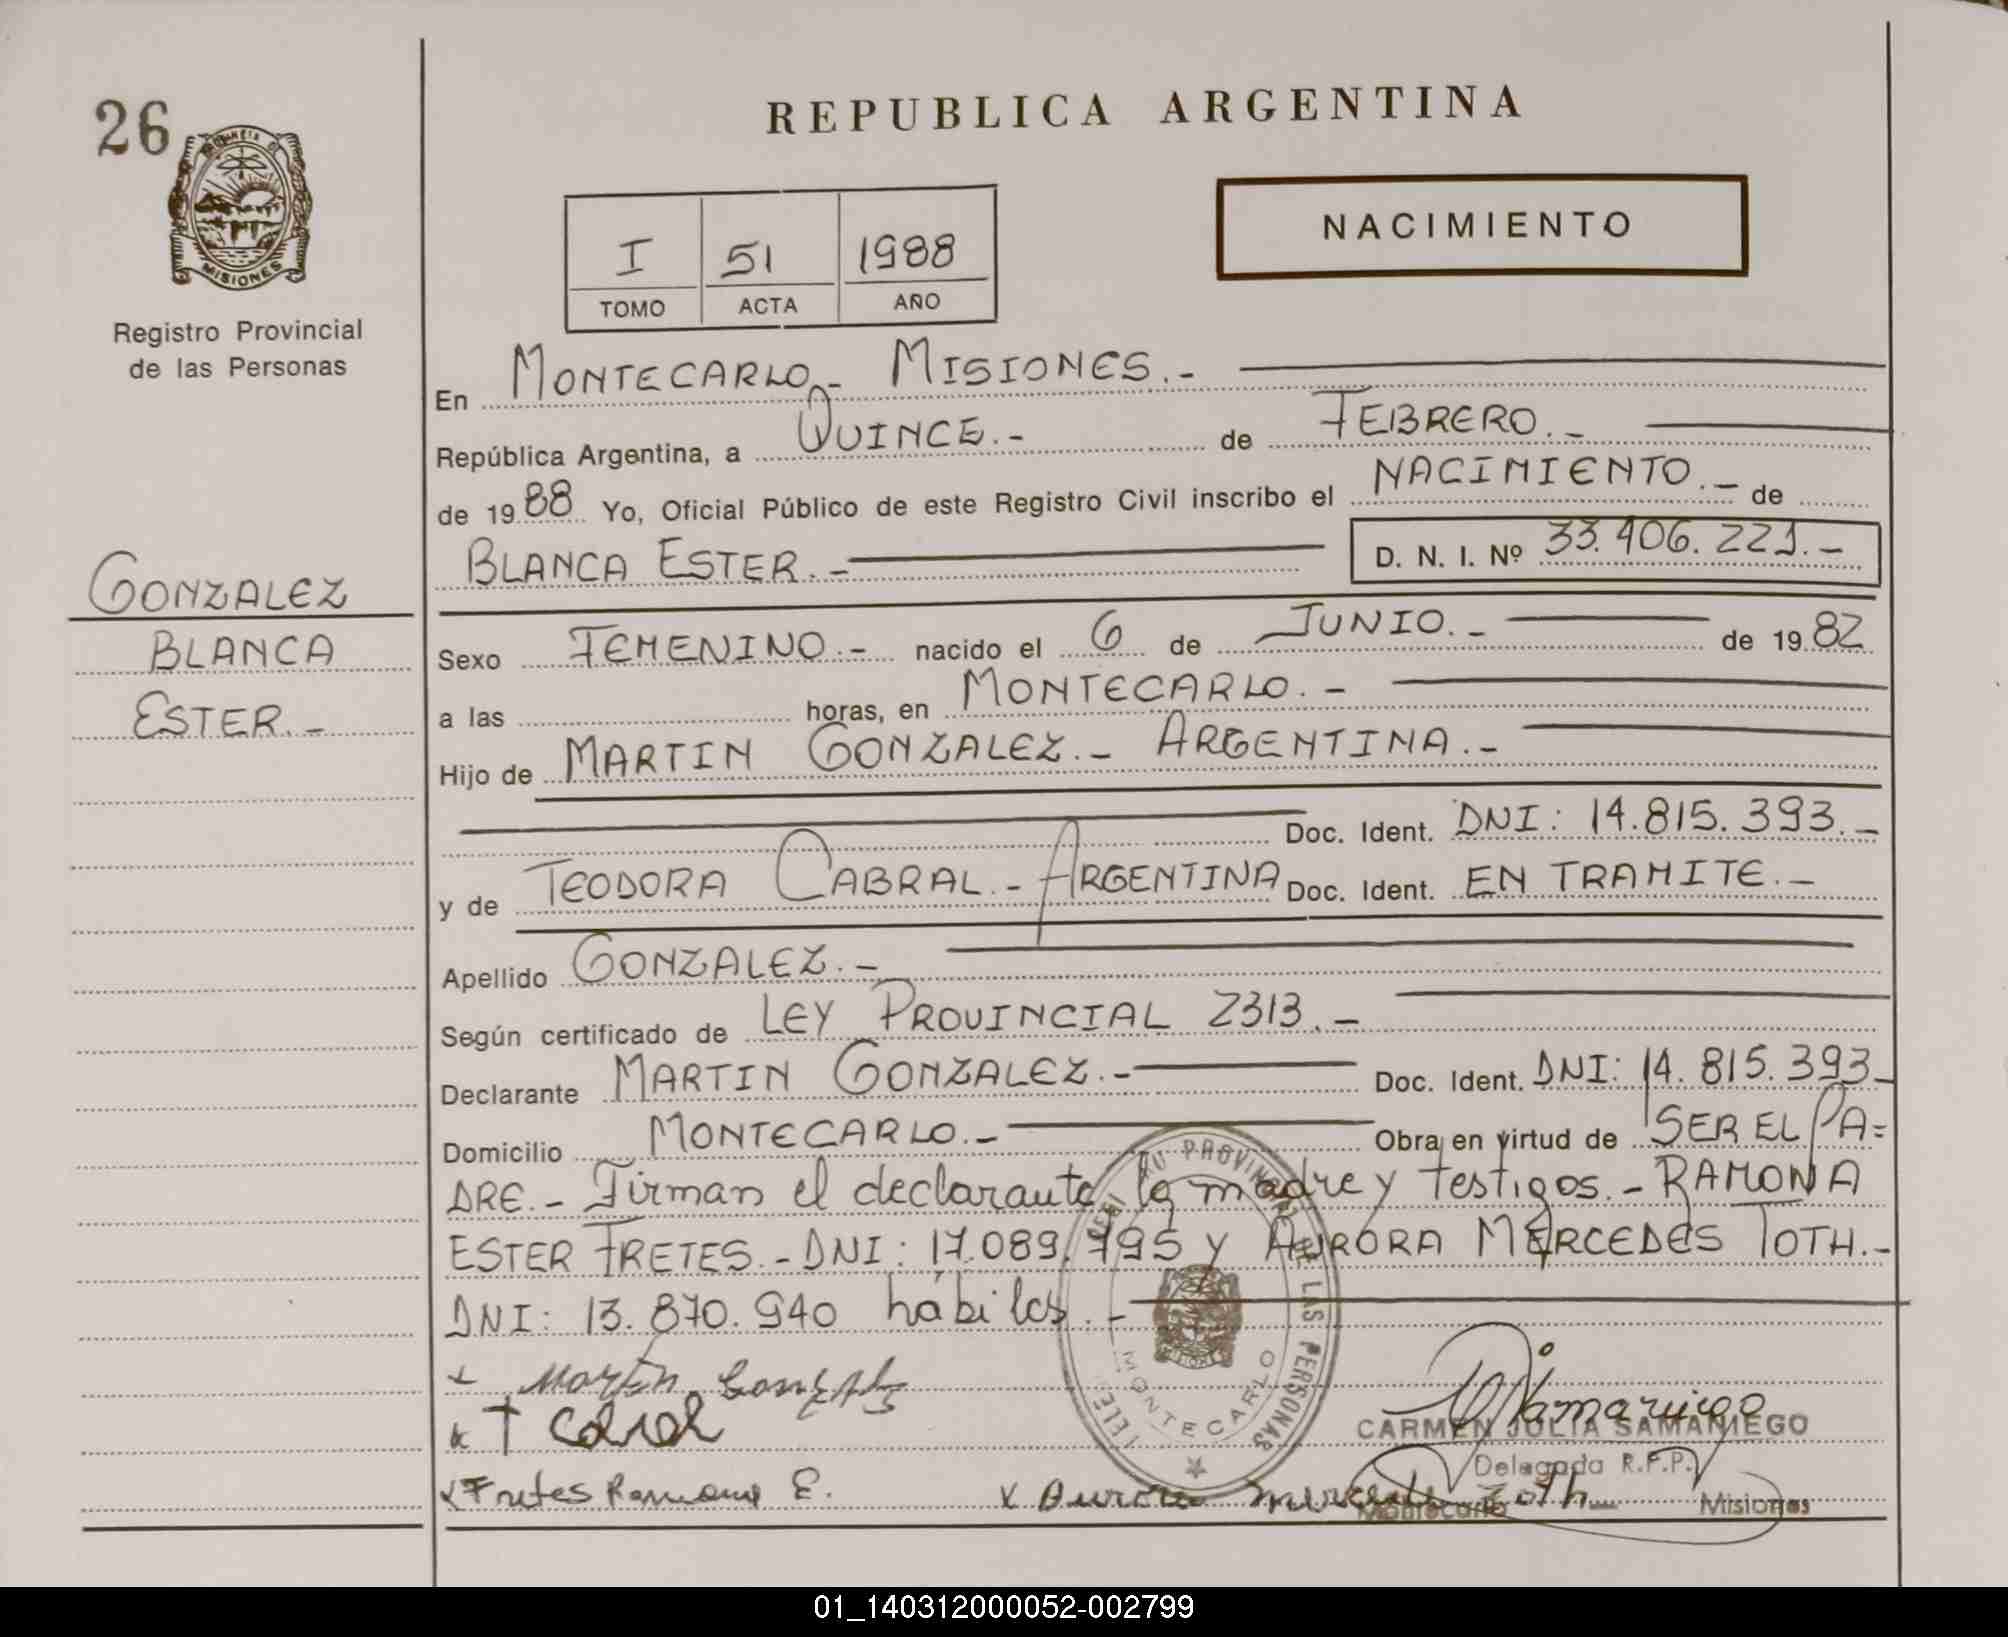 26
PROVINCIA DE
MISIONES
Registro Provincial
de las Personas
GONZALEZ
BLANCA
ESTER.-
REPUBLICA ARGENTINA
NACIMIENTO
I 51 1988
TOMO ACTA AÑO
En MONTECARLO.- MISIONES.-
República Argentina, a QUINCE.- de FEBRERO.-
de 1988 Yo, Oficial Público de este Registro Civil inscribo el NACIMIENTO.- de
BLANCA ESTER.- D. N. I. Nº 33.406.221.-
Sexo FEMENINO.- nacido el 6 de JUNIO.- de 1982
a las horas, en MONTECARLO.-
Hijo de MARTIN GONZALEZ.- ARGENTINA.-
Doc. Ident. DNI: 14.815.393.-
y de TEODORA CABRAL.- ARGENTINA Doc. Ident. EN TRAMITE.-
Apellido GONZALEZ.-
Según certificado de LEY PROVINCIAL 2313.-
Declarante MARTIN GONZALEZ.- Doc. Ident. DNI: 14.815.393-
Domicilio MONTECARLO.- Obra en virtud de SER EL PA=
DRE.- Firman el declarante la madre y testigos.- RAMONA
ESTER FRETES.- DNI: 17.089.795 y AURORA MERCEDES TOTH.-
DNI: 13.870.940 hábiles.-
x Martin Gonzalez
x T Cabral
CARMEN JULIA SAMANIEGO
Delegada R.P.P.
x Fretes Ramona E. x Aurora Mercedes Toth
Montecarlo Misiones
PROVINCIAL DE LAS PERSONAS
MONTECARLO
01_140312000052-002799